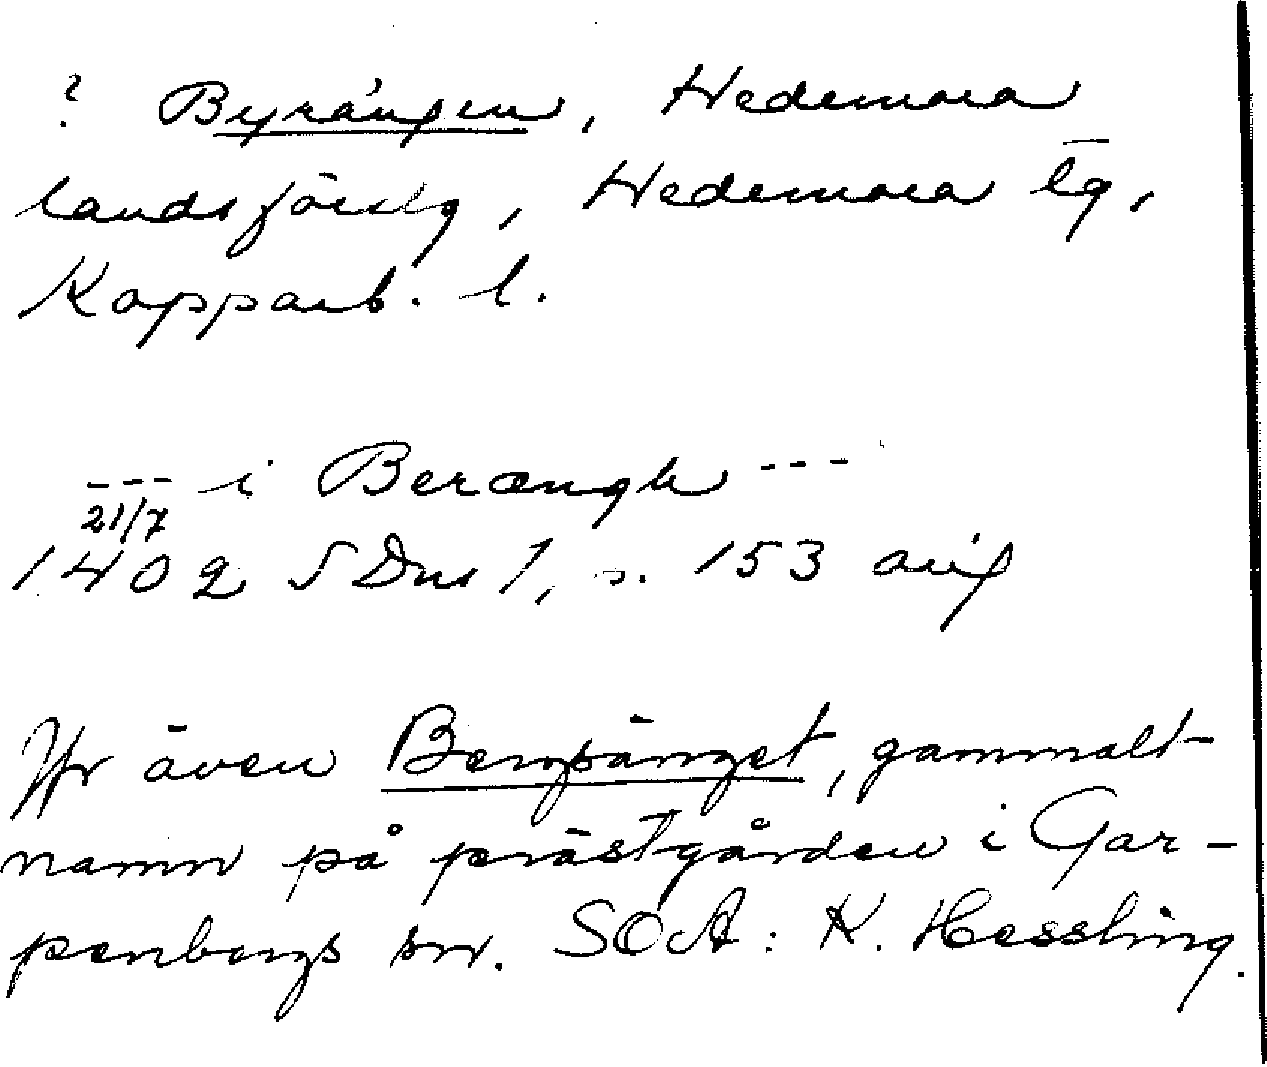 ? Byrängen, Hedemora
landsförslg, Hedemora tg,
Kopparb. l.
--- i Berængh ---
21/7
1402 SDns 1, s. 153 avs
Jfr även Bengänget, gammalt
namn på prästgården i Gar-
penbergs sn. SOA: K. Hessling.